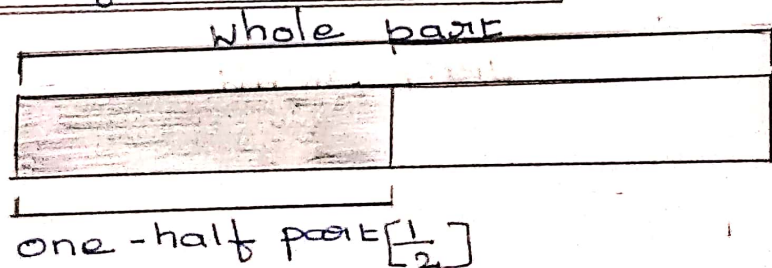 whole part
one-half part [1/2]